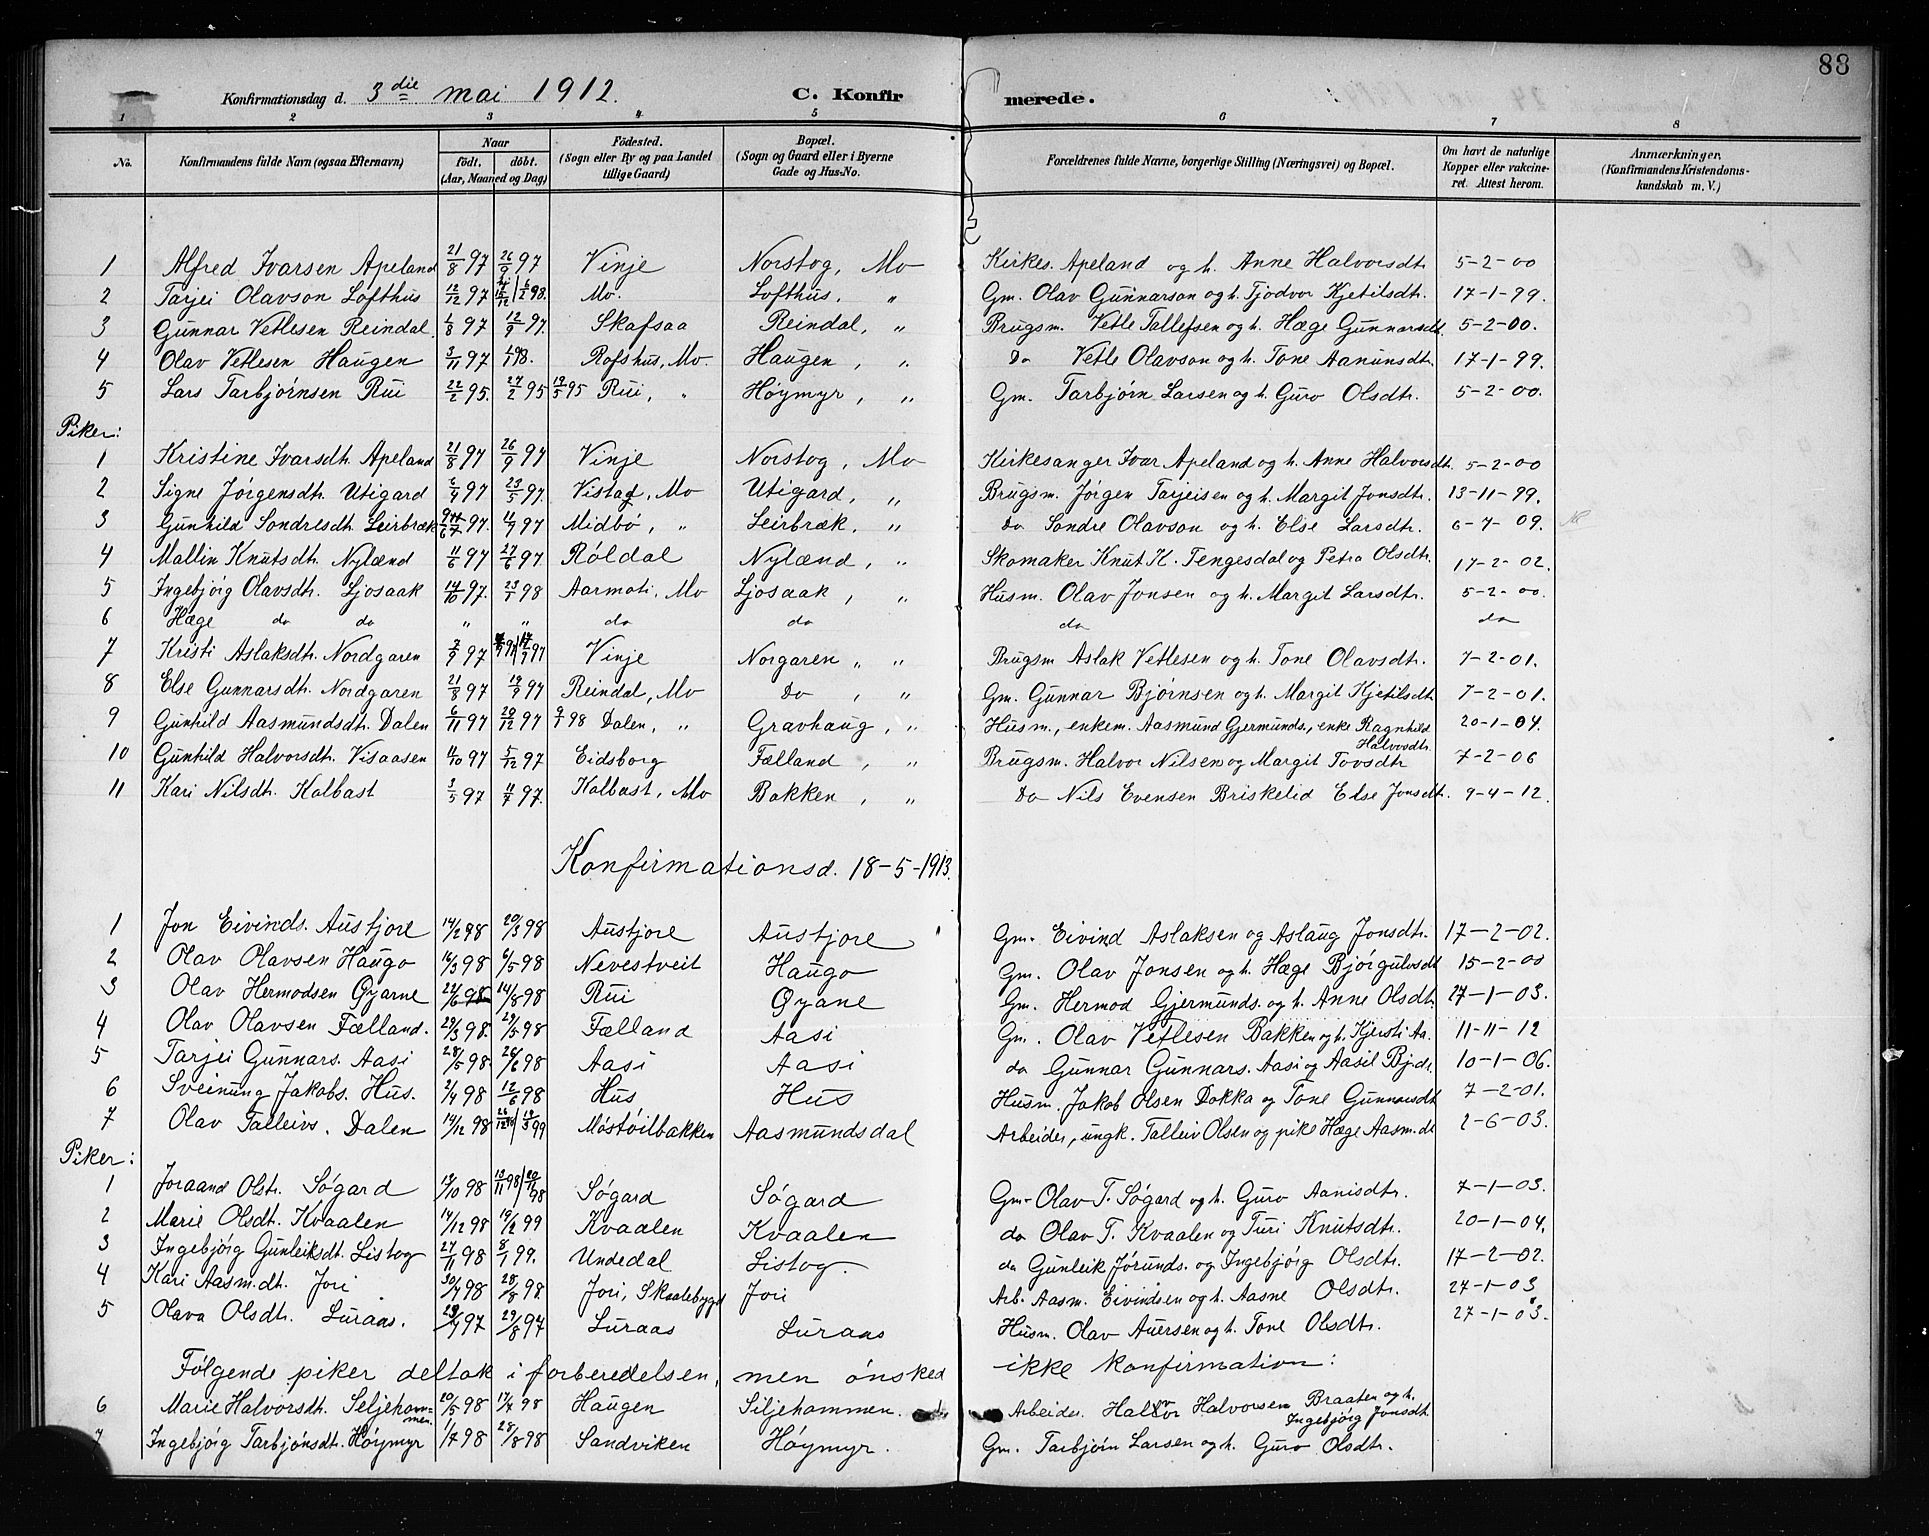 88
Konfirmationsdag d. 3die mai 1912. C. Konfirmerede.
1 2 3 4 5 6 7 8
No. Konfirmandens fulde Navn (ogsaa Efternavn) Naar født, døbt. (Aar, Maaned og Dag) Fødested. (Sogn eller By og paa Landet tillige Gaard) Bopæl. (Sogn og Gaard eller i Byerne Gade og Hus-No. Forældrenes fulde Navne, borgerlige Stilling (Næringsvei) og Bopæl. Om havt de naturlige Kopper eller vakcineret. Attest herom. Anmærkninger. (Konfirmandens Kristendomskundskab m. V.)
1 Alfred Ivarsen Apeland 21/8 97 26/9 97 Vinje Norstog, Mo Kirkes. Apeland og h. Anne Halvorsdtr 5-2-00
2 Tarjei Olavson Lofthus 12/12 97 6/2 98. Mo. Lofthus, " Gm. Olav Gunnarson og h. Tjodvor Kjetilsdtr. 17-1-99.
3 Gunnar Vetlesen Reindal. 1/8 97 12/9 97. Skafsaa Reindal, " Brugsm. Vetle Tallefsen og h. Hæge Gunnarsdtr. 5-2-00.
4 Olav Vetlesen Haugen 3/11 97 Rofshus, Mo. Haugen, " Do Vetle Olavson og h. Tone Aanunsdtr. 17-1-99.
5 Lars Tarbjørnsen Rui 22/2 95. 27/2 95 19/5 95 Rui, " Høymyr, " Gm. Tarbjørn Larsen og h. Guro Olsdtr. 5-2-00.
Piker:
1 Kristine Ivarsdtr. Apeland 21/8 97 26/9 97 Vinje Norstog, Mo Kirkesanger Ivar Apeland og h. Anne Halvorsdtr. 5-2-00
2 Signe Jørgensdtr. Utigard 6/4 97 23/5 97. Vistad, Mo Utigard, " Brugsm. Jørgen Tarjeisen og h. Margit Jonsdtr. 13-11-99.
3 Gunhild Sondresdt. Leirbræk 97. 11/7 97 Midbø, " Leirbræk, " Do Sondre Olavson og h. Else Larsdtr. 6-7-09.
4 Mallin Knutsdtr. Nylænd 11/6 97 27/6 97. Røldal Nylænd, " Skomaker Knut K. Tengesdal og Petra Olsdtr. 17-2-02.
5 Ingebjørg Olavsdtr. Ljosaak 14/10 97. 23/1 98 Aarmoti, Mo Ljosaak, " Husm. Olav Jonsen og h. Margit Larsdtr. 5-2-00.
6 Hæge do do " " do do do do
7 Kristi Aslaksdtr. Nordgaren 2/9 97 97 Vinje Norgaren " " Brugsm Aslak Vetlesen og h. Tone Olavsdtr. 7-2-01.
8 Else Gunnarsdtr. Nordgaren 21/8 97 19/9 97 Reindal, Mo Do, " Gm. Gunnar Bjørnsen og h. Margit Kjetilsdtr 7-2-01.
9 Gunhild Aasmundsdtr. Dalen 6/11 97 20/12 97 9/1 98 Dalen, " Gravhaug, " Husm., enkem. Aasmund Gjermunds., enke Ragnhild Halvosdtr. 20-1-04.
10 Gunhild Halvorsdtr. Visaasen 11/10 97 5/12 97 Eidsborg Fælland, " Brugsm. Halvor Nilsen og Margit Tovsdtr 7-2-06
11 Kari Nilsdtr. Kolbast 3/5 97 11/7 97. Kolbast, Mo Bakken, " Do Nils Evensen Briskelid Else Jonsdtr. 9-4-12.
Konfirmationsd. 18-5-1913.
1 Jon Eivinds. Austjore 14/2 98 20/3 98 Austjore Austjore Gm. Eivind Aslaksen og Aslaug Jonsdtr. 17-2-02.
2 Olav Olavsen Haugo 16/3 98 6/5 98 Nevestveit Haugo Gm. Olav Jonsen og h. Hæge Bjørgulvsdt 15-2-00
3 Olav Hermodsen Øyarne 22/6 98 14/8 98 Rui Øyane Gm. Hermod Gjermunds. og h. Anne Olsdtr. 27-1-03.
4 Olav Olavsen Fælland. 29/3 98. 29/5 98 Fælland Aasi Gm. Olav Vetlesen Bakken og h. Kjersti Aa. 11-11-12
5 Tarjei Gunnars. Aasi 28/5 98. 26/6 98 Aasi Aasi do Gunnar Gunnars. Aasi og Aasil Bj.dr. 10-1-06.
6 Sveinung Jakobs. Hus. 2/4 98 12/6 98 Hus Hus Husm. Jakob Olsen Dokka og Tone Gunnarsdt 7-2-01.
7 Olav Talleivs. Dalen 14/12 98 19/3 99 Møstøilbakken Aasmundsdal Arbeider, ungk. Talleiv Olsen og pike Hæge Aasm.dt 2-6-03.
Piker:
1 Joraand Olstr. Søgard 12/10 98 13/11 98 20/11 98 Søgard Søgard Gm. Olav T. Søgard og h. Guro Aanisdtr. 7-1-03.
2 Marie Olsdt. Kvaalen 14/12 98 19/2 99 Kvaalen Kvaalen do Olav T. Kvaalen og Turi Knutsdtr. 20-1-04.
3 Ingebjørg Gunleiksdt. Listog 27/11 98 8/1 99. Undedal Listog. do Gunleik Jørunds. og Ingebjørg Olsdtr. 17-2-02.
4 Kari Aasm.dt. Jori 30/7 98 28/8 98 Jori, Skaalebygd Jori Arb. Aasm. Eivindsen og h. Aasne Olsdtr. 27-1-03
5 Olava Olsdtr. Luraas. 29/7 97 29/8 97 Luraas Luraas Husm. Olav Auersen og h. Tone Olsdtr. 27-1-03.
Følgende piker deltok i forberedelsen, men ønsked ikke konfirmation:
6 Marie Halvorsdt. Seljehommen. 20/5 98 17/7 98 Haugen Siljehommen. Arbeider. Halvor Halvorsen Braaten og h. Ingebjørg Jonsdt.
7 Ingebjørg Tarbjønsdt. Høymyr 1/7 98 28/8 98 Sandviken Høymyr. Gm. Tarbjørn Larsen og h. Guro Olsdtr.